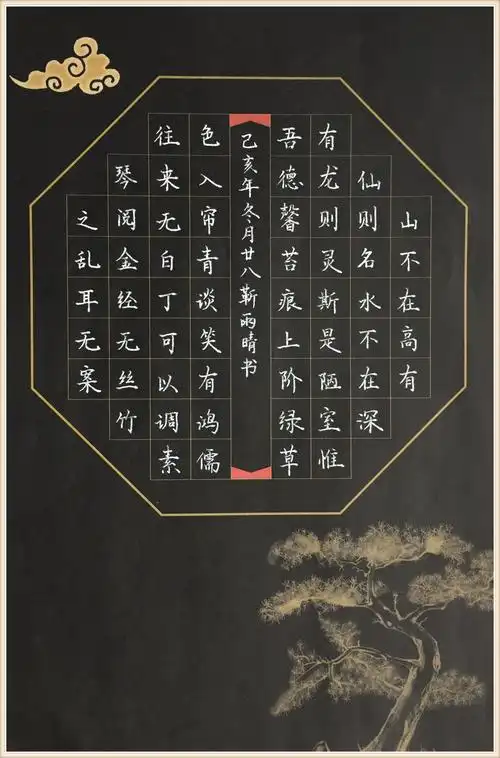 山不在高有
仙则名水不在深
有龙则灵斯是陋室惟
吾德馨苔痕上阶绿草
己亥年冬月廿八靳雨晴书
色入帘青谈笑有鸿儒
往来无白丁可以调素
琴阅金经无丝竹
之乱耳无案